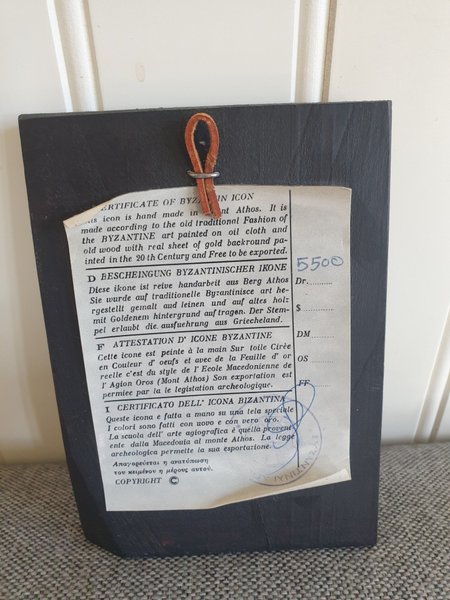 CERTIFICATE OF BYZANTIN ICON
This icon is hand made in Mont Athos. It is
made according to the old traditional Fashion of
the BYZANTINE art painted on oil cloth and
old wood with real sheet of gold backround pa-
inted in the 20 th Century and Free to be exported.
D BESCHEINGUNG BYZANTINISCHER IKONE
Diese ikone ist reive handarbeit aus Berg Athos
Sie wurde auf traditionelle Byzantinisce art he-
rgestellt gemalt auf leinen und auf altes holz
mit Goldenem hintergrund auf tragen. Der Stem-
pel erlaubt die ausfuehrung aus Griecheland.
F ATTESTATION D' ICONE BYZANTINE
Cette icone est peinte à la main Sur toile Cirèe
en Couleur d' oeufs et avec de la Feuille d' or
reelle c'est du style de l' Ecole Macedonienne de
l' Agion Oros (Mont Athos) Son exportation est
permiee par la le legistation archeologique.
I CERTIFICATO DELL' ICONA BIZANTINA
Queste icona e fatta a mano su una tela speciale
I colori sono fatti con uovo e con vero oro.
La scuola dell' arte agiografica è quella provent
ente dalla Macedonia al monte Athos. La legge
archeologica permette la sua esportazione.
Απαγορεύεται ἡ ἀνατύπωση
τοῦ κειμένου ἢ μέρους αὐτοῦ.
COPYRIGHT C
5500
Dr..........
$ ..........
DM..........
OS ..........
FF